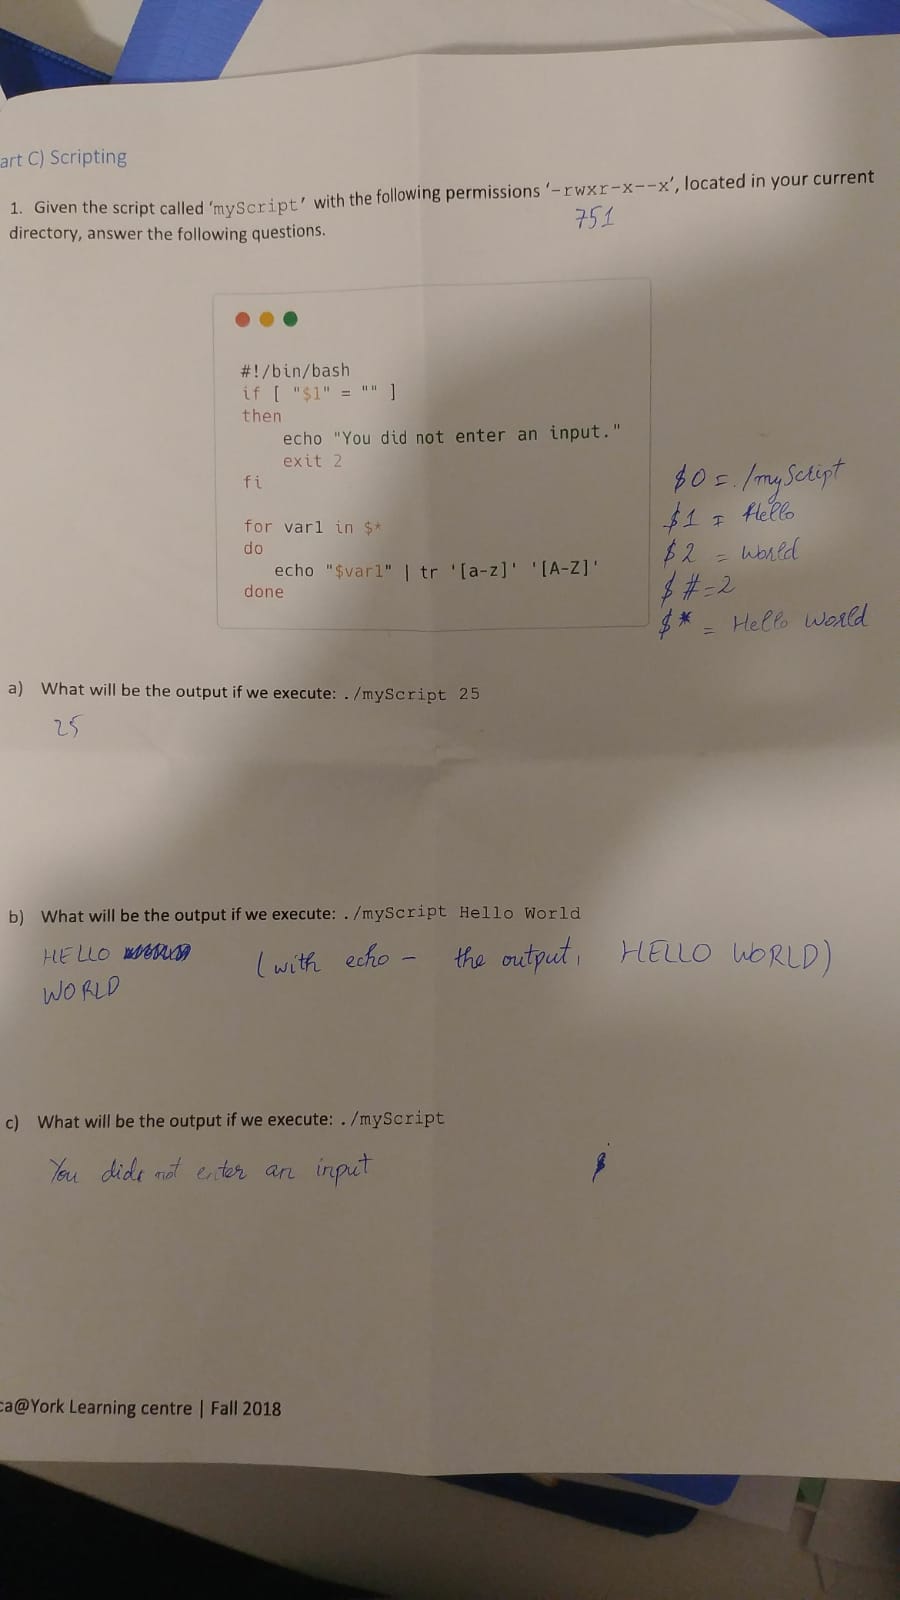 art C) Scripting
1. Given the script called 'myScript' with the following permissions '-rwxr-x--x', located in your current
751
directory, answer the following questions.
#!/bin/bash
if [ "$1" = "" ]
then
echo "You did not enter an input."
exit 2
fi
for var1 in $*
do
echo "$var1" | tr '[a-z]' '[A-Z]'
done
$0 = ./myScript
$1 = Hello
$2 = World
$#=2
$* = Hello World
a) What will be the output if we execute: ./myScript 25
25
b) What will be the output if we execute: ./myScript Hello World
HELLO (with echo - the output, HELLO WORLD)
WORLD
c) What will be the output if we execute: ./myScript
You did not enter an input
ca@York Learning centre | Fall 2018